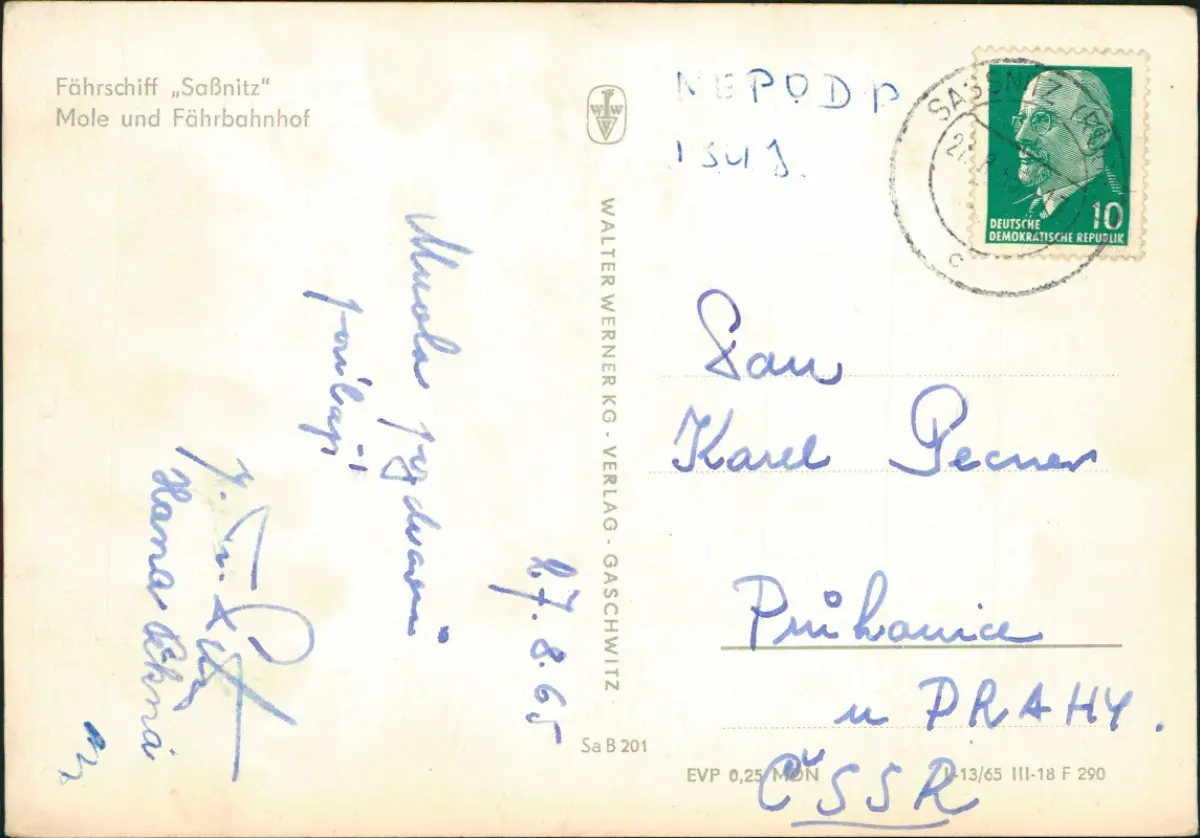 Fährschiff „Saßnitz"
Mole und Fährbahnhof
WALTER WERNER KG - VERLAG - GASCHWITZ
Sa B 201
EVP 0,25 MDN
I-13/65 III-18 F 290
SASSNITZ
c
DEUTSCHE
DEMOKRATISCHE REPUBLIK
10
27.8.65
Mnoho pozdravů
Hana
Pan
Karel Pecner
Průhonice
u PRAHY.
ČSSR